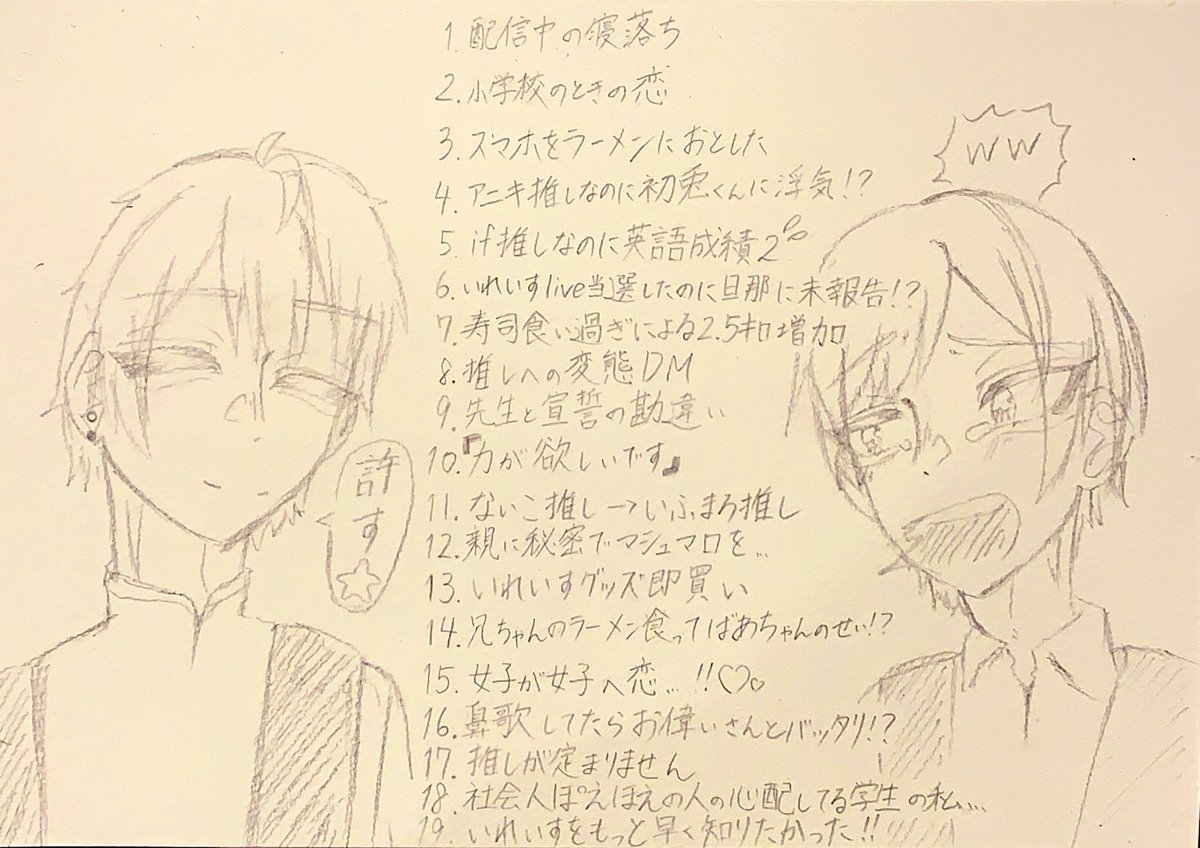 1. 配信中の寝落ち
2. 小学校のときの恋
3. スマホをラーメンにおとした
4. アニキ推しなのに初兎くんに浮気!?
5. if推しなのに英語成績2
6. いれいすlive当選したのに旦那に未報告!?
7. 寿司食い過ぎによる2.5キロ増加
8. 推しへの変態DM
9. 先生と宣誓の勘違い
10.『力が欲しいです』
11. ないこ推し→いふまろ推し
12. 親に秘密でマシュマロを...
13. いれいすグッズ即買い
14. 兄ちゃんのラーメン食ってばあちゃんのせい!?
15. 女子が女子へ恋...!!♡♡
16. 鼻歌してたらお偉いさんとバッタリ!?
17. 推しが定まりません
18. 社会人ぽえぽえの人の心配してる学生の私...
19. いれいすをもっと早く知りたかった!!
許す☆
ww